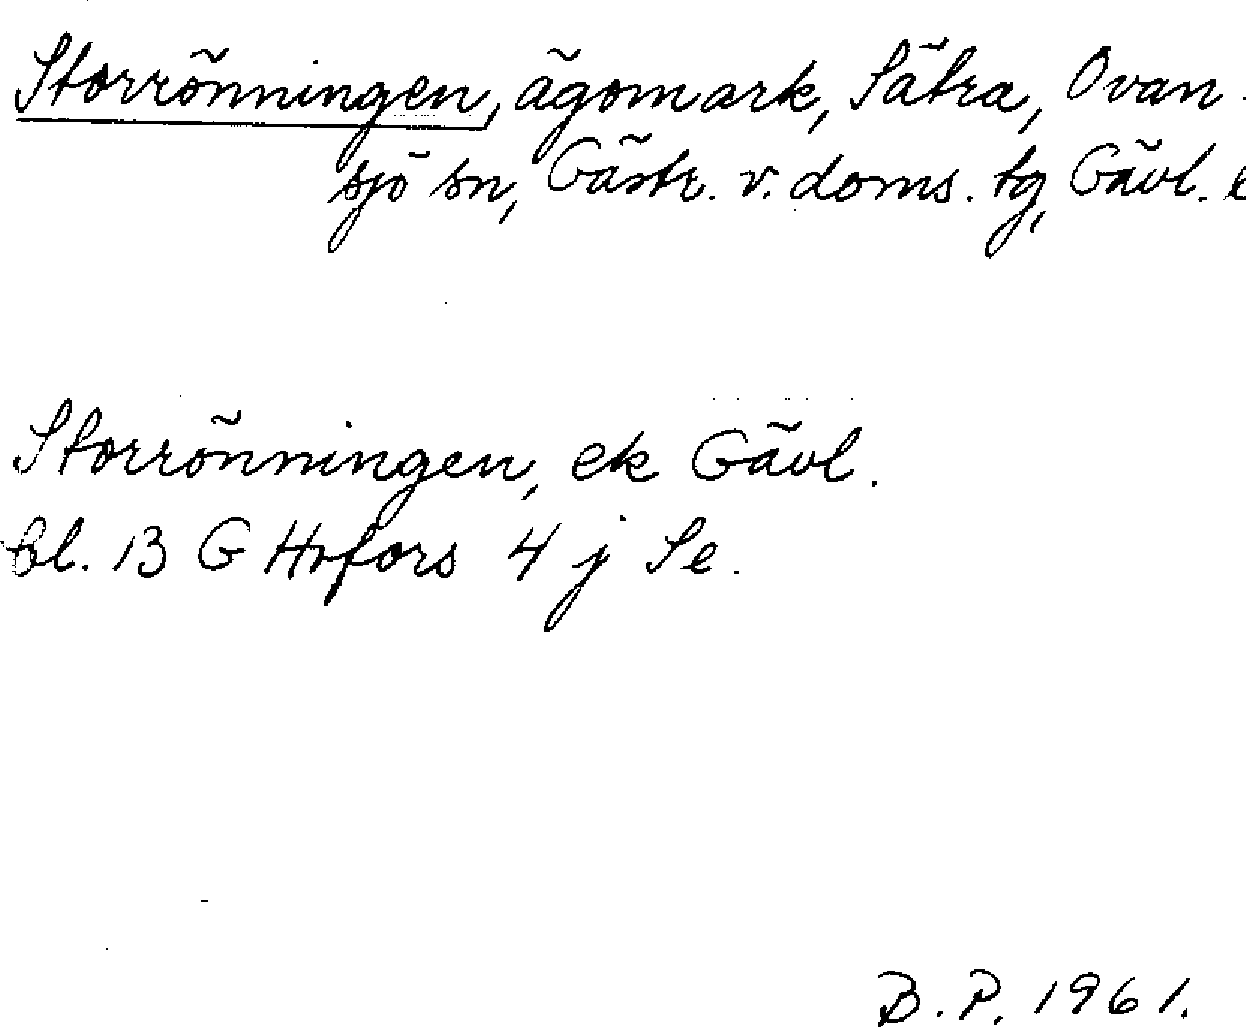 Storrönningen, ägomark, Sätra, Ovan-
sjö sn, Gästr. v. doms. tg, Gävl.
Storrönningen, ek Gävl.
bl. 13 G Hofors 4 j Se.
B.P. 1961.